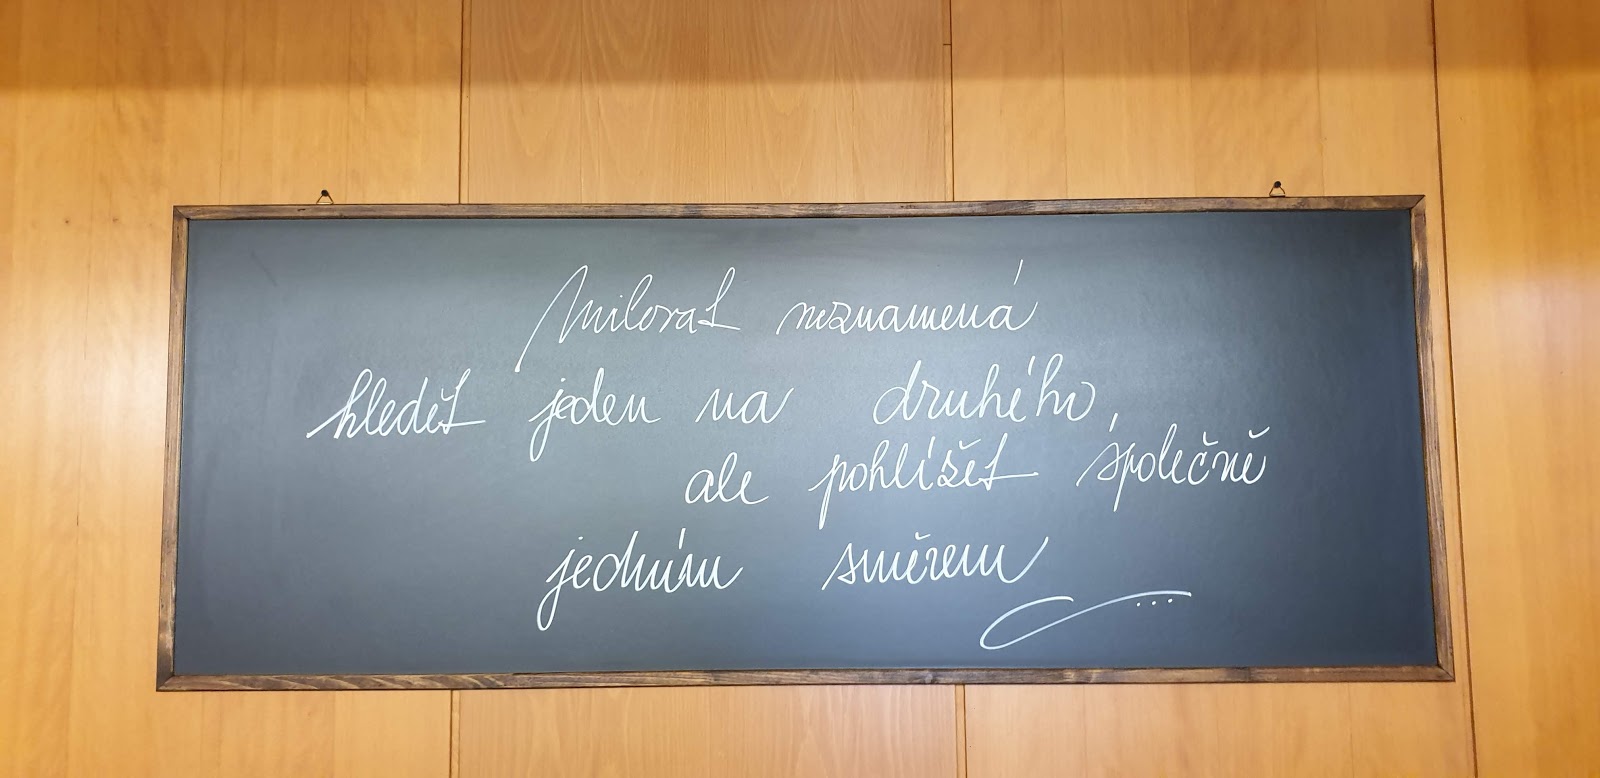 Milovat neznamená
hledět jeden na druhého,
ale pohlížet společně
jedním směrem
...